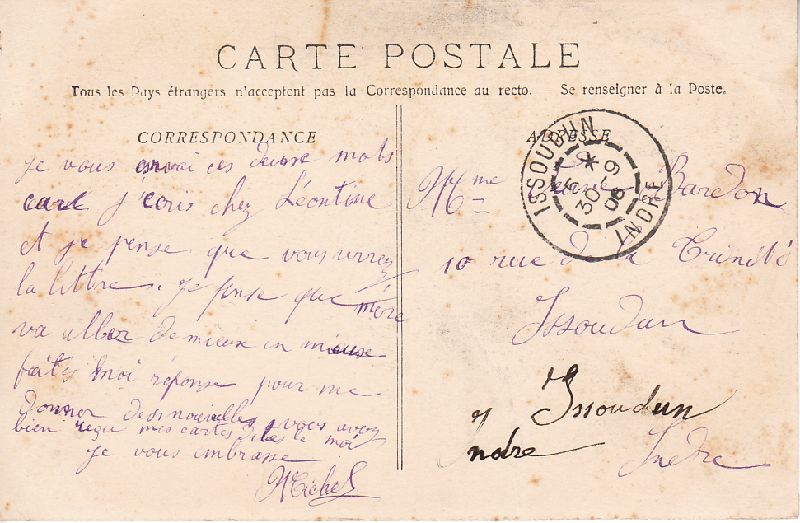 CARTE POSTALE
Tous les Pays étrangers n'acceptent pas la Correspondance au recto. Se renseigner à la Poste.
CORRESPONDANCE
je vous envoi ces deuse mots
care j'ecris chez Léontine
et je pense que vous urrez
la lettre. Je pense que mère
va aller de mieux en mieuse
faites moi réponse pour me
donner des nouvelles vous avez
bien reçu mes cartes dites le moi
je vous embrasse
Michel
ADRESSE
ISSOUDUN
30 - 9
06
INDRE
Mme Bardon
10 rue de la Trinité
Issoudun
Issoudun
Indre
Indre